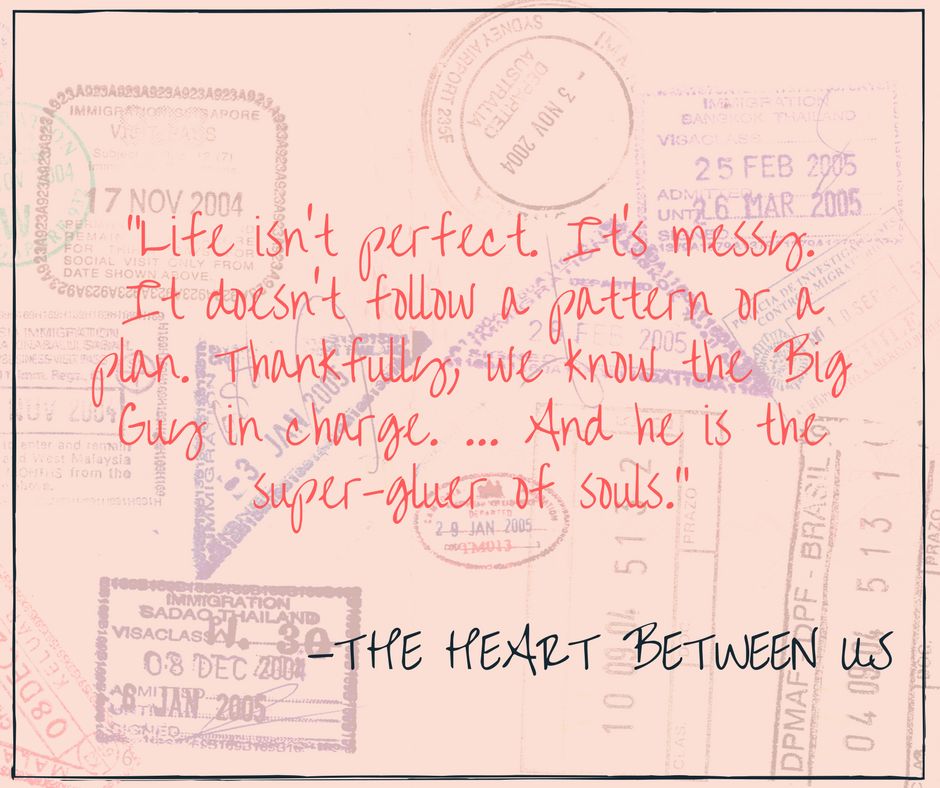 "Life isn't perfect. It's messy.
It doesn't follow a pattern or a
plan. Thankfully, we know the Big
Guy in charge. ... And he is the
super-gluer of souls."
-THE HEART BETWEEN US
SYDNEY AIRPORT 235F
DEPARTED
AUSTRALIA
3 NOV 2004
17 NOV 2004
SOCIAL VISIT ONLY FROM
DATE SHOWN ABOVE
IMMIGRATION
BANGKOK THAILAND
VISACLASS
25 FEB 2005
ADMITTED
UNTIL 26 MAR 2005
3 JAN 2005
DEPARTED
29 JAN 2005
TM013
IMMIGRATION
SADAO THAILAND
VISACLASS
08 DEC 2004
6 JAN 2005
West Malaysia
from the
08 DEC
10 09 04 51
PRAZO
CLAS.
DPMAF DPF - BRASIL
04 09 04 513 1
PRAZO